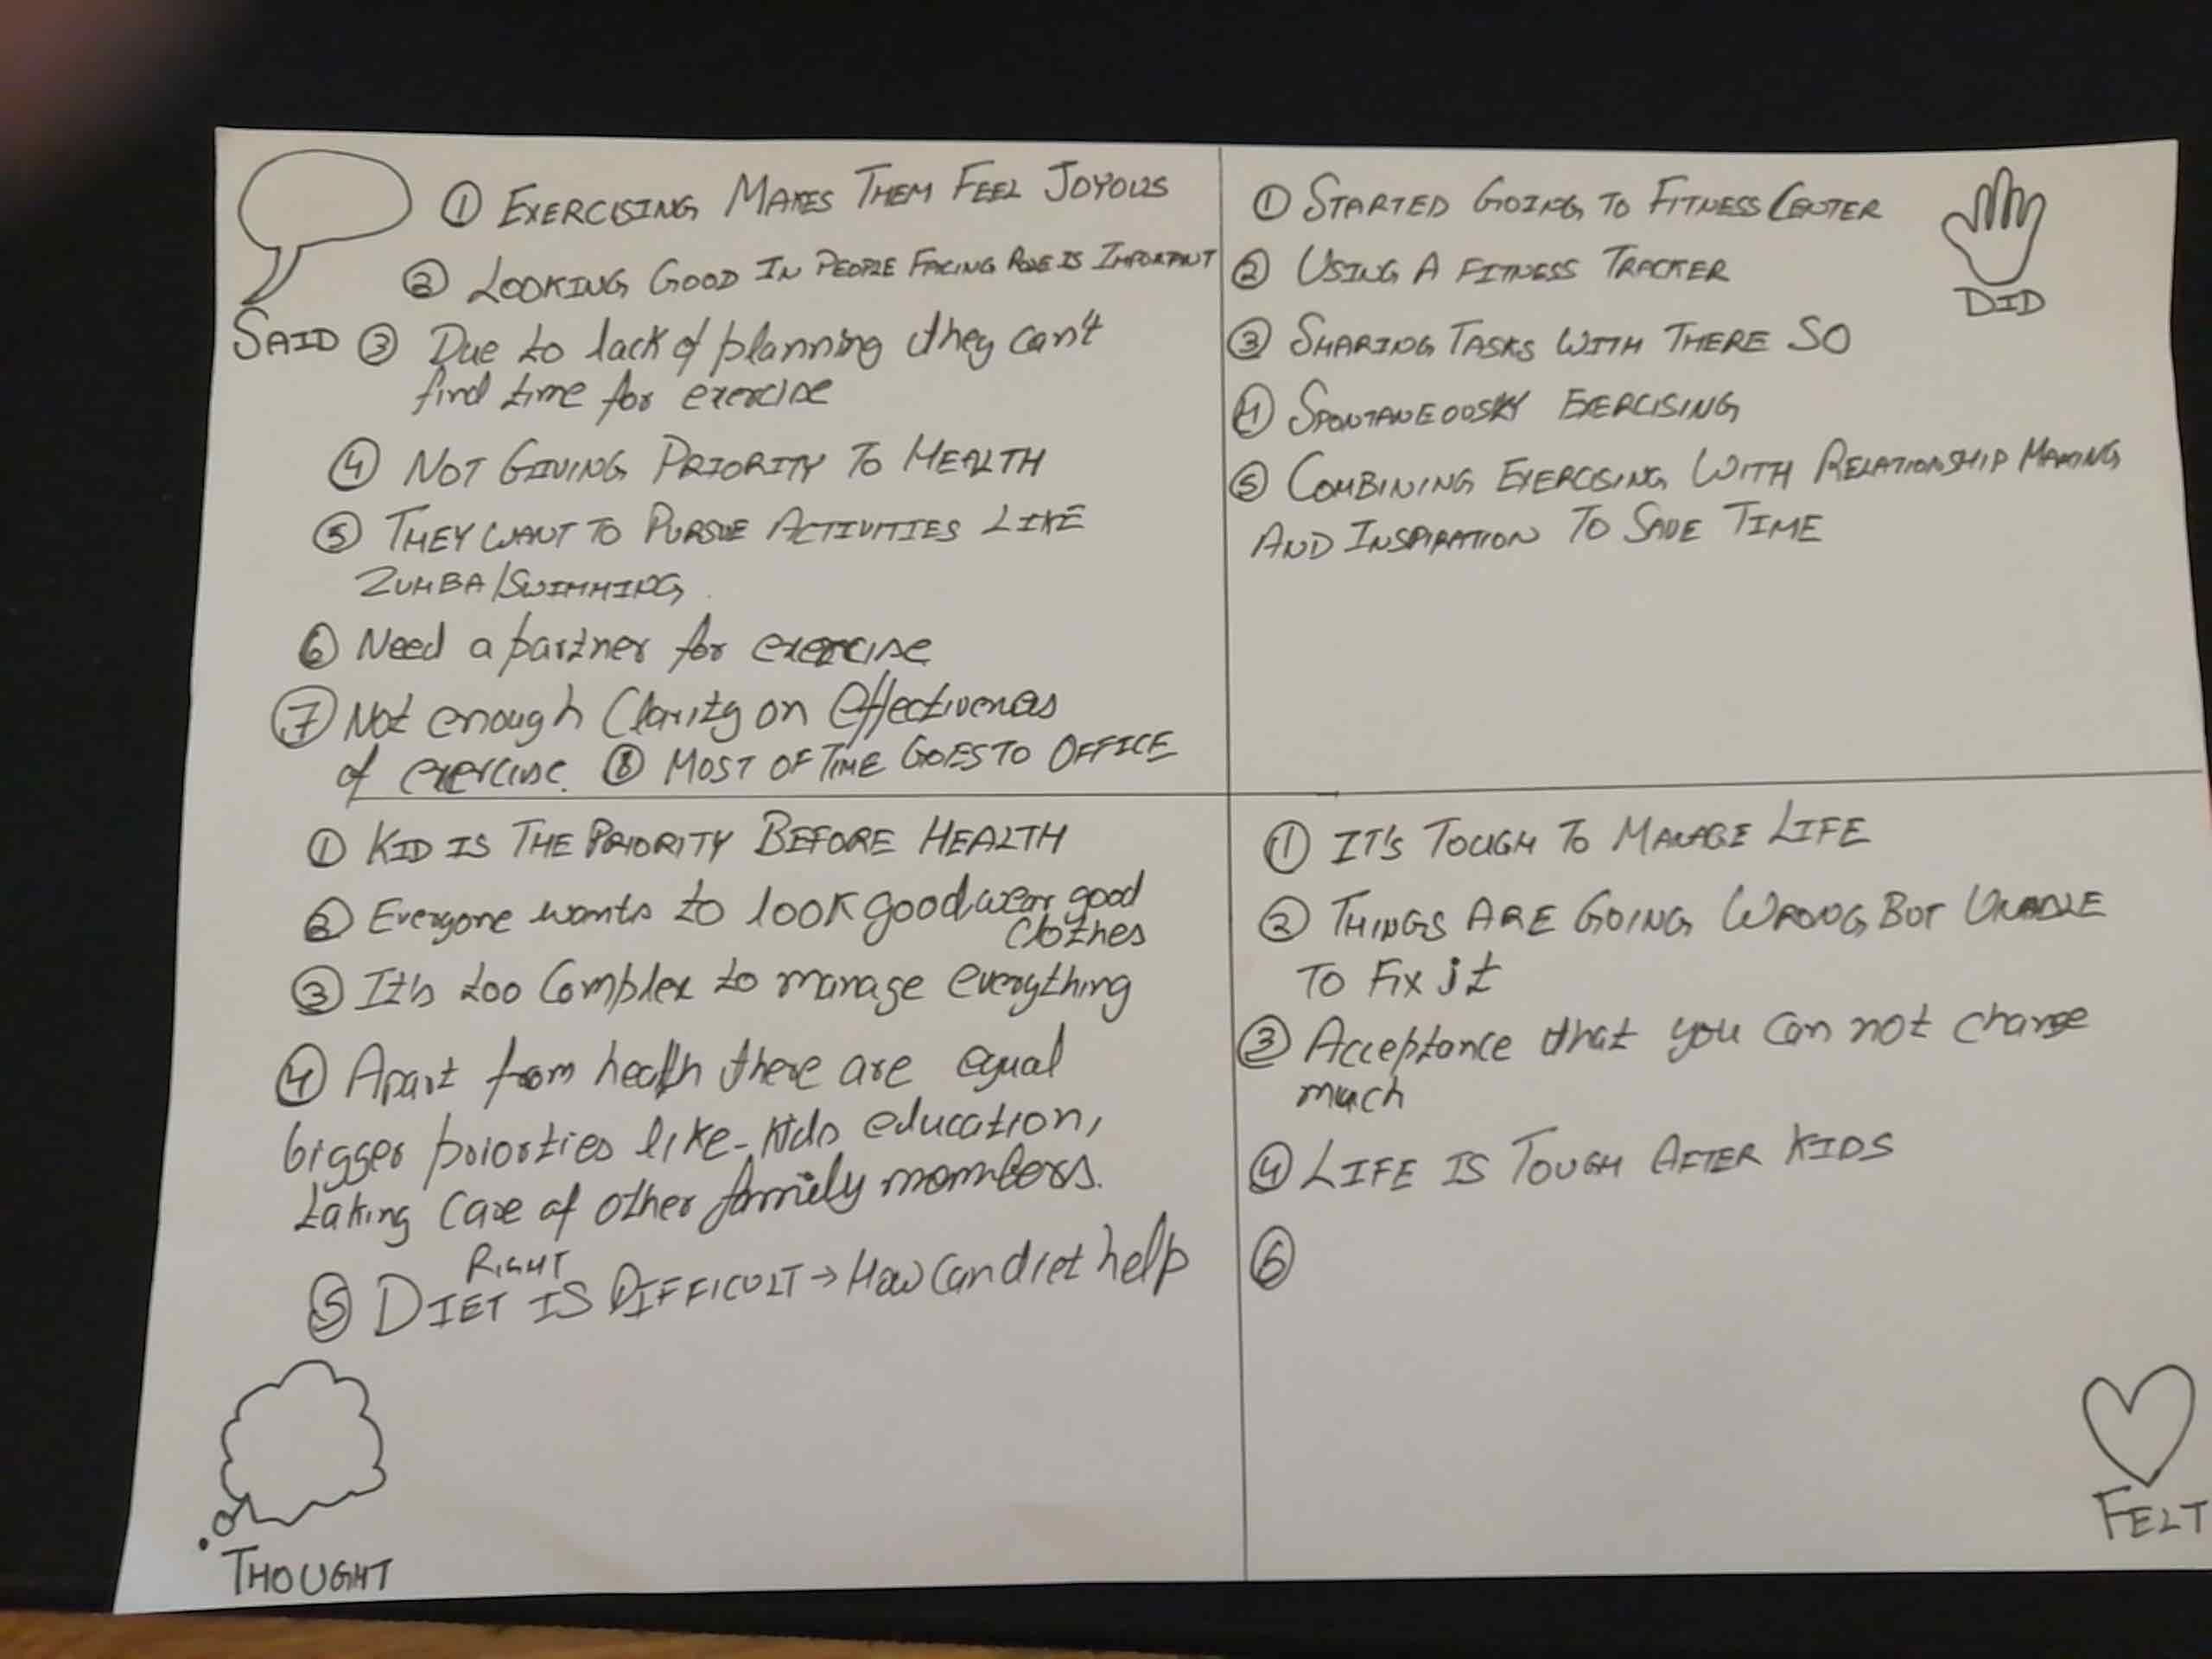 ① EXERCISING MAKES THEM FEEL JOYOUS
② LOOKING GOOD IN PEOPLE FACING ROLE IS IMPORTANT
SAID
③ Due to lack of planning they can't
find time for exercise
④ NOT GIVING PRIORITY TO HEALTH
⑤ THEY WANT TO PURSUE ACTIVITIES LIKE
ZUMBA/SWIMMING
⑥ Need a partner for exercise
⑦ Not enough Clarity on Effectiveness
of exercise. ⑧ MOST OF TIME GOES TO OFFICE
① STARTED GOING TO FITNESS CENTER
② USING A FITNESS TRACKER
DID
③ SHARING TASKS WITH THERE SO
④ SPONTANEOUSLY EXERCISING
⑤ COMBINING EXERCISING WITH RELATIONSHIP MAKING
AND INSPIRATION TO SAVE TIME
① KID IS THE PRIORITY BEFORE HEALTH
② Everyone wants to look good wear good
clothes
③ It's too Complex to manage everything
④ Apart from health there are equal
bigger priorties like-kids education,
taking care of other family members.
RIGHT
⑤ DIET IS DIFFICULT → How can diet help
THOUGHT
① IT'S TOUGH TO MANAGE LIFE
② THINGS ARE GOING WRONG BUT UNABLE
TO FIX it
③ Acceptance that you can not change
much
④ LIFE IS TOUGH AFTER KIDS
⑥
FELT